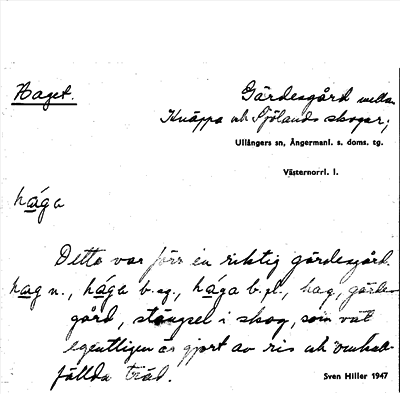 Haget.
Gärdesgård mellan
Knäppa och Sjölands skogar;
Ullångers sn, Ångermanl. s. doms. tg.
Västernorrl. l.
hága
Detta var förr en riktig gärdesgård.
hag n., hága b.sg., hága b.pl., hag, gärdes-
gård, stängsel i skog, som vat
egentligen är gjort av ris och omkull-
fällda träd.
Sven Hiller 1947